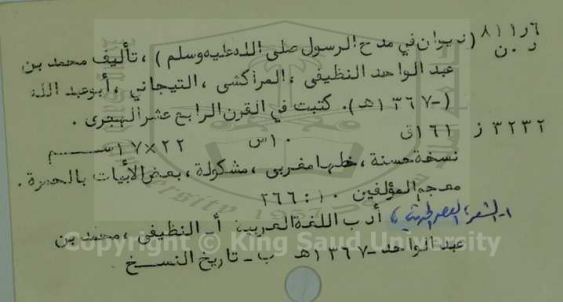 ٨١١٫٦ (ديوان في مدح الرسول صلى الله عليه وسلم)، تأليف محمد بن
د.ن عبد الواحد النظيفي، المراكشي، التيجاني، أبو عبد الله
(-١٣٦٧هـ). كتبت في القرن الرابع عشر الهجري.
٣٢٣٢ ز ١٦١ق ١٠س ٢٢×١٧سم
نسخة حسنة، خطها مغربي، مشكولة، بعض الأبيات بالحمرة.
معجم المؤلفين ١٠: ٢٦٦
١- الشعر، العصر الحديث، أدب اللغة العربية أ- النظيفي، محمد بن
عبد الواحد -١٣٦٧هـ ب- تاريخ النسخ
Copyright © King Saud University